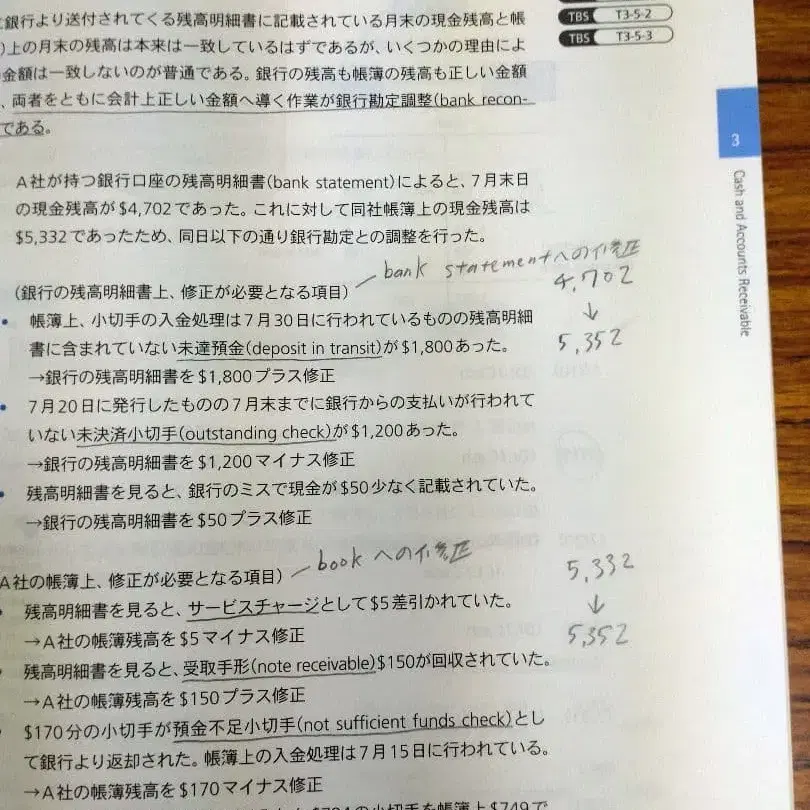 TBS T3-5-2
TBS T3-5-3
銀行より送付されてくる残高明細書に記載されている月末の現金残高と帳
上の月末の残高は本来は一致しているはずであるが、いくつかの理由によ
金額は一致しないのが普通である。銀行の残高も帳簿の残高も正しい金額
、両者をともに会計上正しい金額へ導く作業が銀行勘定調整(bank recon-
である。
A社が持つ銀行口座の残高明細書(bank statement)によると、7月末日
の現金残高が$4,702であった。これに対して同社帳簿上の現金残高は
$5,332であったため、同日以下の通り銀行勘定との調整を行った。
bank statementへの修正
(銀行の残高明細書上、修正が必要となる項目)
4,702
↓
5,352
• 帳簿上、小切手の入金処理は7月30日に行われているものの残高明細
書に含まれていない未達預金(deposit in transit)が$1,800あった。
→銀行の残高明細書を$1,800プラス修正
• 7月20日に発行したものの7月末までに銀行からの支払いが行われて
いない未決済小切手(outstanding check)が$1,200あった。
→銀行の残高明細書を$1,200マイナス修正
• 残高明細書を見ると、銀行のミスで現金が$50少なく記載されていた。
→銀行の残高明細書を$50プラス修正
bookへの修正
A社の帳簿上、修正が必要となる項目)
5,332
↓
5,352
残高明細書を見ると、サービスチャージとして$5差引かれていた。
→A社の帳簿残高を$5マイナス修正
残高明細書を見ると、受取手形(note receivable)$150が回収されていた。
→A社の帳簿残高を$150プラス修正
$170分の小切手が預金不足小切手(not sufficient funds check)とし
て銀行より返却された。帳簿上の入金処理は7月15日に行われている。
→A社の帳簿残高を$170マイナス修正
の小切手を帳簿上$749で
3
Cash and Accounts Receivable